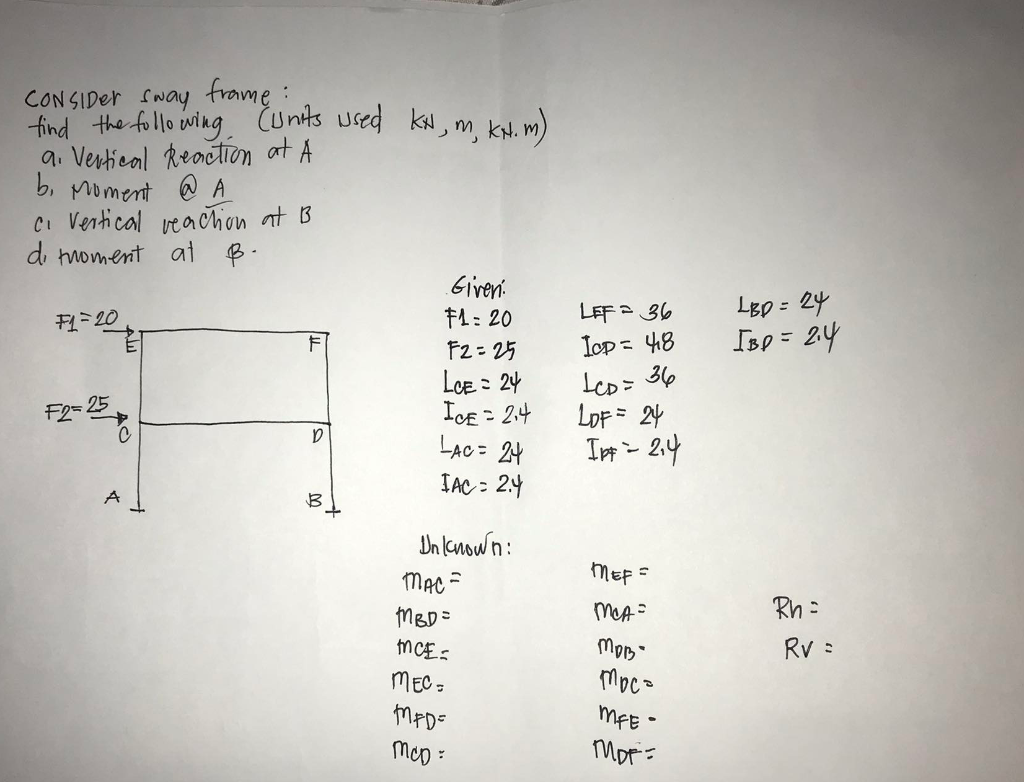 CONSIDer sway frame :
find the following (Units used kN, m, kN.m)
a. Vertical Reaction at A
b. Moment @ A
c. Vertical reaction at B
d. Moment at B.
Given:
F1 = 20
F2 = 25
LCE = 24
ICE = 2.4
LAC = 24
IAC = 2.4
LEF = 36
ICD = 4.8
LCD = 36
LDF = 24
IDF = 2.4
LBD = 24
IBD = 2.4
F1 = 20
E
F
F2 = 25
C
D
A
B
Unknown:
MAC =
MBD =
MCE =
MEC =
MFD =
MCD =
MEF =
MCA =
MDB =
MDC =
MFE =
MDF =
Rh =
Rv =